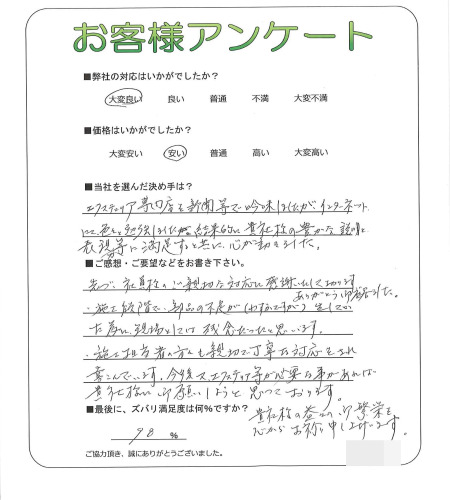 お客様アンケート
■弊社の対応はいかがでしたか？
大変良い 良い 普通 不満 大変不満
■価格はいかがでしたか？
大変安い 安い 普通 高い 大変高い
■当社を選んだ決め手は？
エクステリア専門店を新聞等で吟味しましたがインターネット
にて色々と勉強しました結果的に貴社様の豊かな説明と
表現等に満足すると共に、心が動きました。
■ご感想・ご要望などをお書き下さい。
先づ、社員様のご親切な対応に感謝いたして居ります
ありがとう御座いました。
・施工段階で、部品の不足が(わずかですが)生じてい
た為に、現場としては残念だったと思います。
・施工担当者の方々も親切で丁寧な対応をされ
喜こんでいます。今後又、エクステリア等が必要な事があれば
貴社様に御願いしようと思っております。
貴社様の益々の御繁栄を
心からお祈り申し上げます。
■最後に、ズバリ満足度は何％ですか？
98 ％
ご協力頂き、誠にありがとうございました。